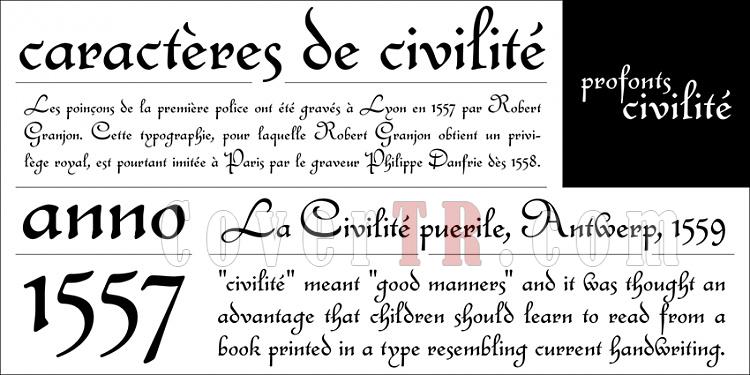 caractères de civilité
profonts
civilité
Les poinçons de la première police ont été gravés à Lyon en 1557 par Robert
Granjon. Cette typographie, pour laquelle Robert Granjon obtient un privi-
lège royal, est pourtant imitée à Paris par le graveur Philippe Danfrie dès 1558.
anno
1557
La Civilité puerile, Antwerp, 1559
CoverTR.com
"civilité" meant "good manners" and it was thought an
advantage that children should learn to read from a
book printed in a type resembling current handwriting.